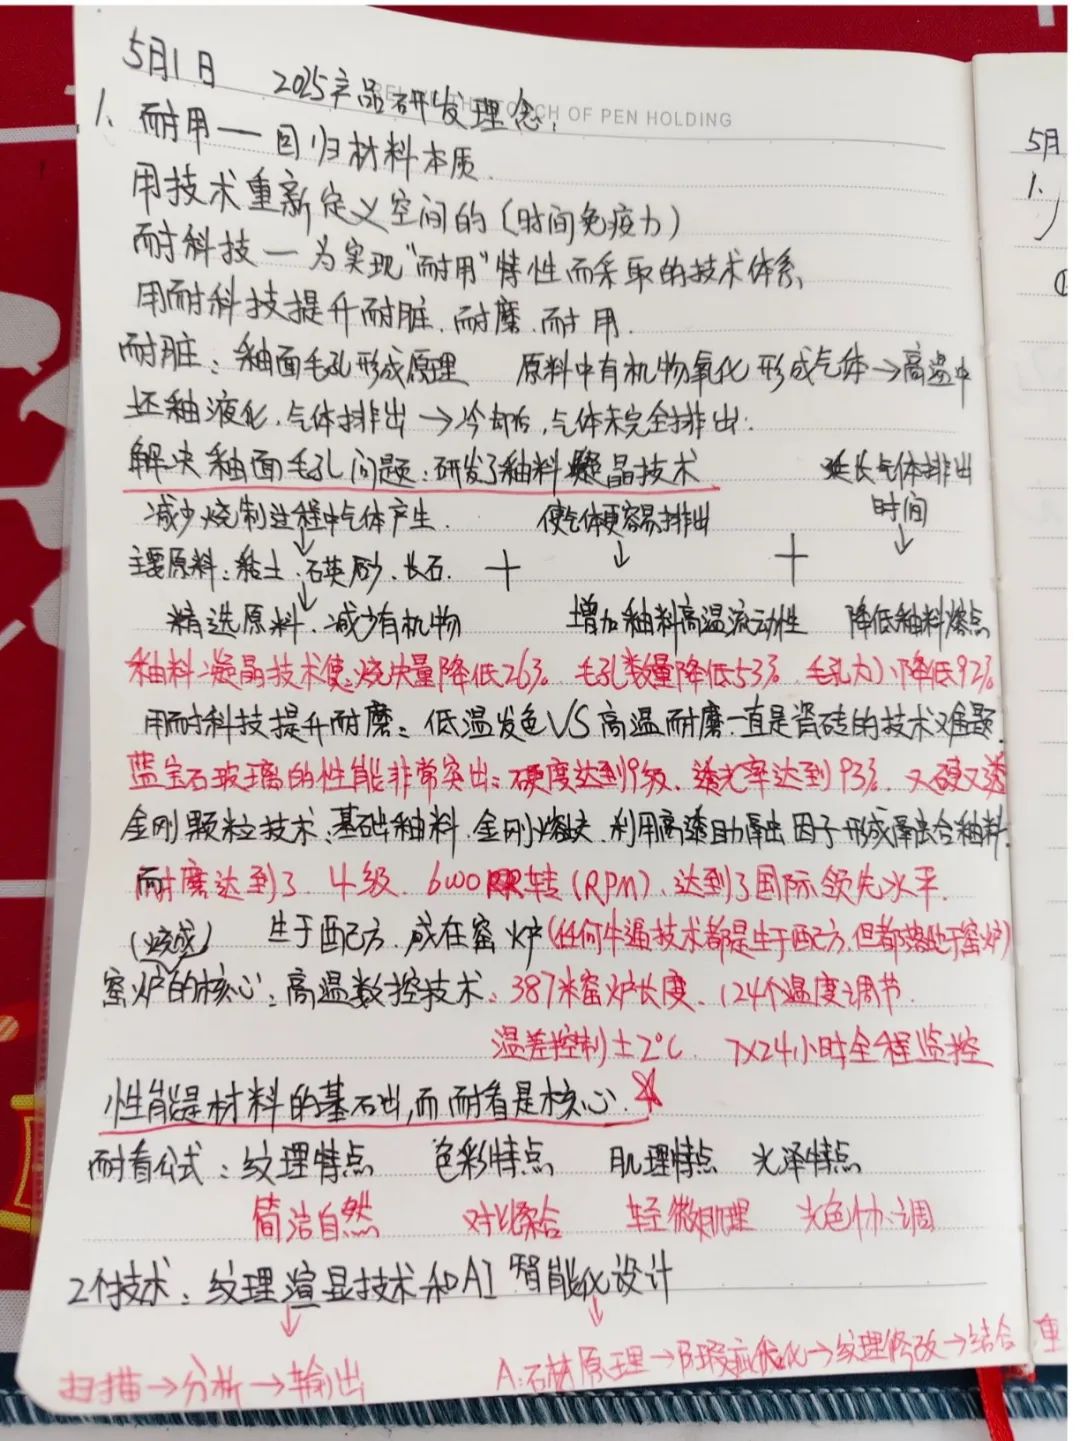 5月1日 2025产品研发理念:
TOUCH OF PEN HOLDING
1. 耐用——回归材料本质.
用技术重新定义空间的(时间免疫力)
耐科技—为实现"耐用"特性而采取的技术体系,
用耐科技提升耐脏.耐磨.耐用.
耐脏:釉面毛孔形成原理 原料中有机物氧化形成气体→高温中
坯釉液化,气体排出→冷却后,气体未完全排出.
解决釉面毛孔问题:研发了釉料凝晶技术 延长气体排出
减少烧制过程中气体产生. 使气体更容易排出 时间
主要原料:粘土.石英砂.长石. + ↓ + ↓
精选原料.减少有机物 增加釉料高温流动性 降低釉料熔点
釉料凝晶技术使:烧失量降低26% 毛孔数量降低53% 毛孔大小降低92%
用耐科技提升耐磨:低温发色VS高温耐磨一直是瓷砖的技术难题.
蓝宝石玻璃的性能非常突出:硬度达到9级.透光率达到93%.又硬又透
金刚颗粒技术:基础釉料.金刚熔块.利用高透自析出因子形成
耐磨达到了 4级 6000转(RPM).达到了国际领先水平.
(烧成) 生于配方.成在窑炉(任何牛逼技术都是生于配方.但都 于窑炉)
窑炉的核心:高温数控技术:387米窑炉长度.124个温度调节.
温差控制±2℃. 7×24小时全程监控
性能是材料的基石,而耐看是核心.
耐看公式:纹理特点 色彩特点 肌理特点 光泽特点
简洁自然 对比 合 轻微肌理 光色协调
2个技术:纹理渲显技术和AI智能化设计
↓ ↓
扫描→分析→输出 A:石材原理→ 瑕疵优化→纹理修改→结合
5月
1.
①
重